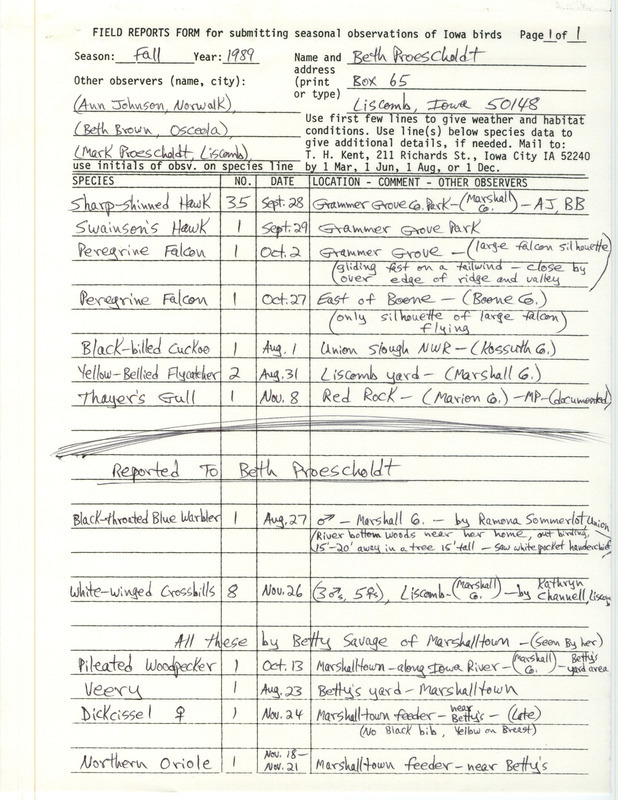 FIELD REPORTS FORM for submitting seasonal observations of Iowa birds Page 1 of 1
Season: Fall Year: 1989 Name and address (print or type) Beth Proescholdt
Box 65
Liscomb, Iowa 50148
Other observers (name, city):
(Ann Johnson, Norwalk),
(Beth Brown, Osceola),
(Mark Proescholdt, Liscomb),
use initials of obsv. on species line
Use first few lines to give weather and habitat
conditions. Use line(s) below species data to
give additional details, if needed. Mail to:
T. H. Kent, 211 Richards St., Iowa City IA 52240
by 1 Mar, 1 Jun, 1 Aug, or 1 Dec.
SPECIES NO. DATE LOCATION - COMMENT - OTHER OBSERVERS
Sharp-shinned Hawk 35 Sept. 28 Grammer Grove Co. Park - (Marshall Co.) - AJ, BB
Swainson's Hawk 1 Sept. 29 Grammer Grove Park
Peregrine Falcon 1 Oct. 2 Grammer Grove - (large falcon silhouette
gliding fast on a tailwind - close by
over edge of ridge and valley)
Peregrine Falcon 1 Oct. 27 East of Boone - (Boone Co.)
(only silhouette of large falcon)
flying
Black-billed Cuckoo 1 Aug. 1 Union Slough NWR - (Kossuth Co.)
Yellow-Bellied Flycatcher 2 Aug. 31 Liscomb yard - (Marshall Co.)
Thayer's Gull 1 Nov. 8 Red Rock - (Marion Co.) - MP - (documented)
Reported To Beth Proescholdt
Black-throated Blue Warbler 1 Aug. 27 ♂ - Marshall Co. - by Ramona Sommerlot, Union
(River bottom woods near her home, out birding,
15'-20' away in a tree 15' tall - saw white pocket handerchief)
White-winged Crossbills 8 Nov. 26 (3♂s, 5♀s), Liscomb - (Marshall Co.) - by Kathryn Channell, Liscomb
All these by Betty Savage of Marshalltown - (Seen By her)
Pileated Woodpecker 1 Oct. 13 Marshalltown - along Iowa River - (Marshall Co.) - Betty's yard area
Veery 1 Aug. 23 Betty's yard - Marshalltown
Dickcissel ♀ 1 Nov. 24 Marshalltown feeder - near Betty's - (Late)
(No Black bib, Yellow on Breast)
Northern Oriole 1 Nov. 18 - Nov. 21 Marshalltown feeder - near Betty's